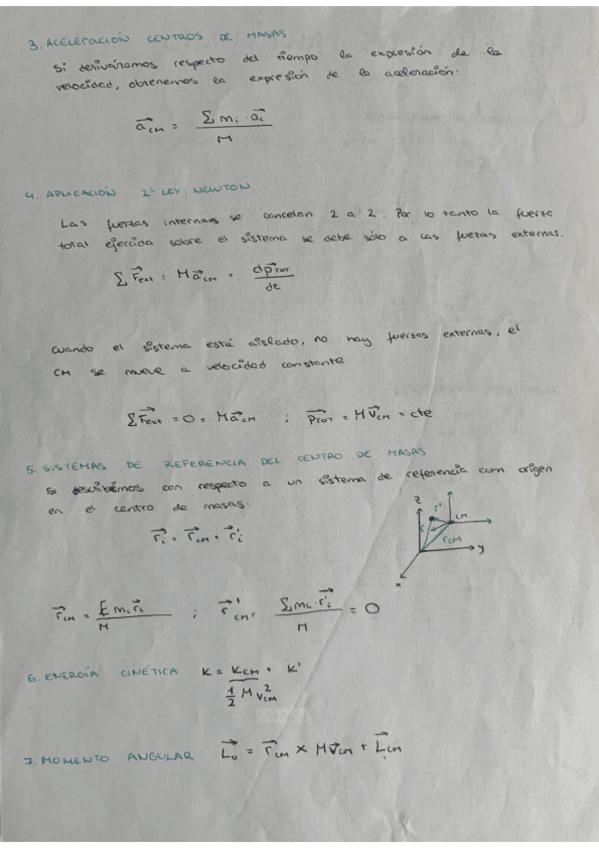 3. ACELERACIÓN CENTROS DE MASAS
Si derivásramos respecto del tiempo la expresión de la
velocidad, obtenemos la expresión de la aceleración:
a⃗cm = Σ mi · a⃗i / M
4. APLICACIÓN 2ª LEY NEWTON
Las fuerzas internas se cancelan 2 a 2. Por lo tanto la fuerza
total ejercida sobre el sistema se debe sólo a las fuerzas externas.
Σ F⃗ext = M a⃗cm = dp⃗TOT / dt
Cuando el sistema está aislado, no hay fuerzas externas, el
CM se mueve a velocidad constante
Σ F⃗ext = 0 = M a⃗cm ; p⃗TOT = M v⃗cm = cte
5. SISTEMAS DE REFERENCIA DEL CENTRO DE MASAS
Si describimos con respecto a un sistema de referencia com origen
en el centro de masas:
r⃗i = r⃗cm + r⃗'i
z r' cm
rcm y
x
r⃗cm = Σ mi r⃗i / M ; r⃗'cm = Σ mi · r⃗'i / M = 0
6. ENERGÍA CINÉTICA K = KCM + K'
1/2 M v²cm
7. MOMENTO ANGULAR L⃗o = r⃗cm × M v⃗cm + L⃗cm